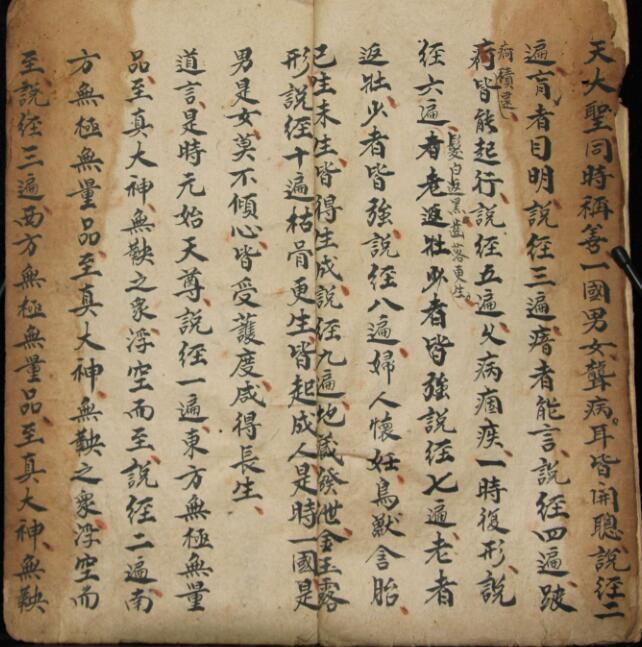 天大聖同時稱善一國男女聾病耳皆開聰說經二
遍盲者目明說經三遍瘖者能言說經四遍跛
痾積逮
痾皆能起行說經五遍久病痼疾一時復形說
髮白返黑齒落更生
經六遍者老返牡少者皆強說經七遍老者
返牡少者皆強說經八遍婦人懷妊鳥獸含胎
已生未生皆得生成說經九遍地藏發泄金玉露
形說經十遍枯骨更生皆起成人是時一國是
男是女莫不傾心皆受護度咸得長生
道言是時元始天尊說經一遍東方無極無量
品至真大神無鞅之衆浮空而至說經二遍南
方無極無量品至真大神無鞅之衆浮空而
至說經三遍西方無極無量品至真大神無鞅